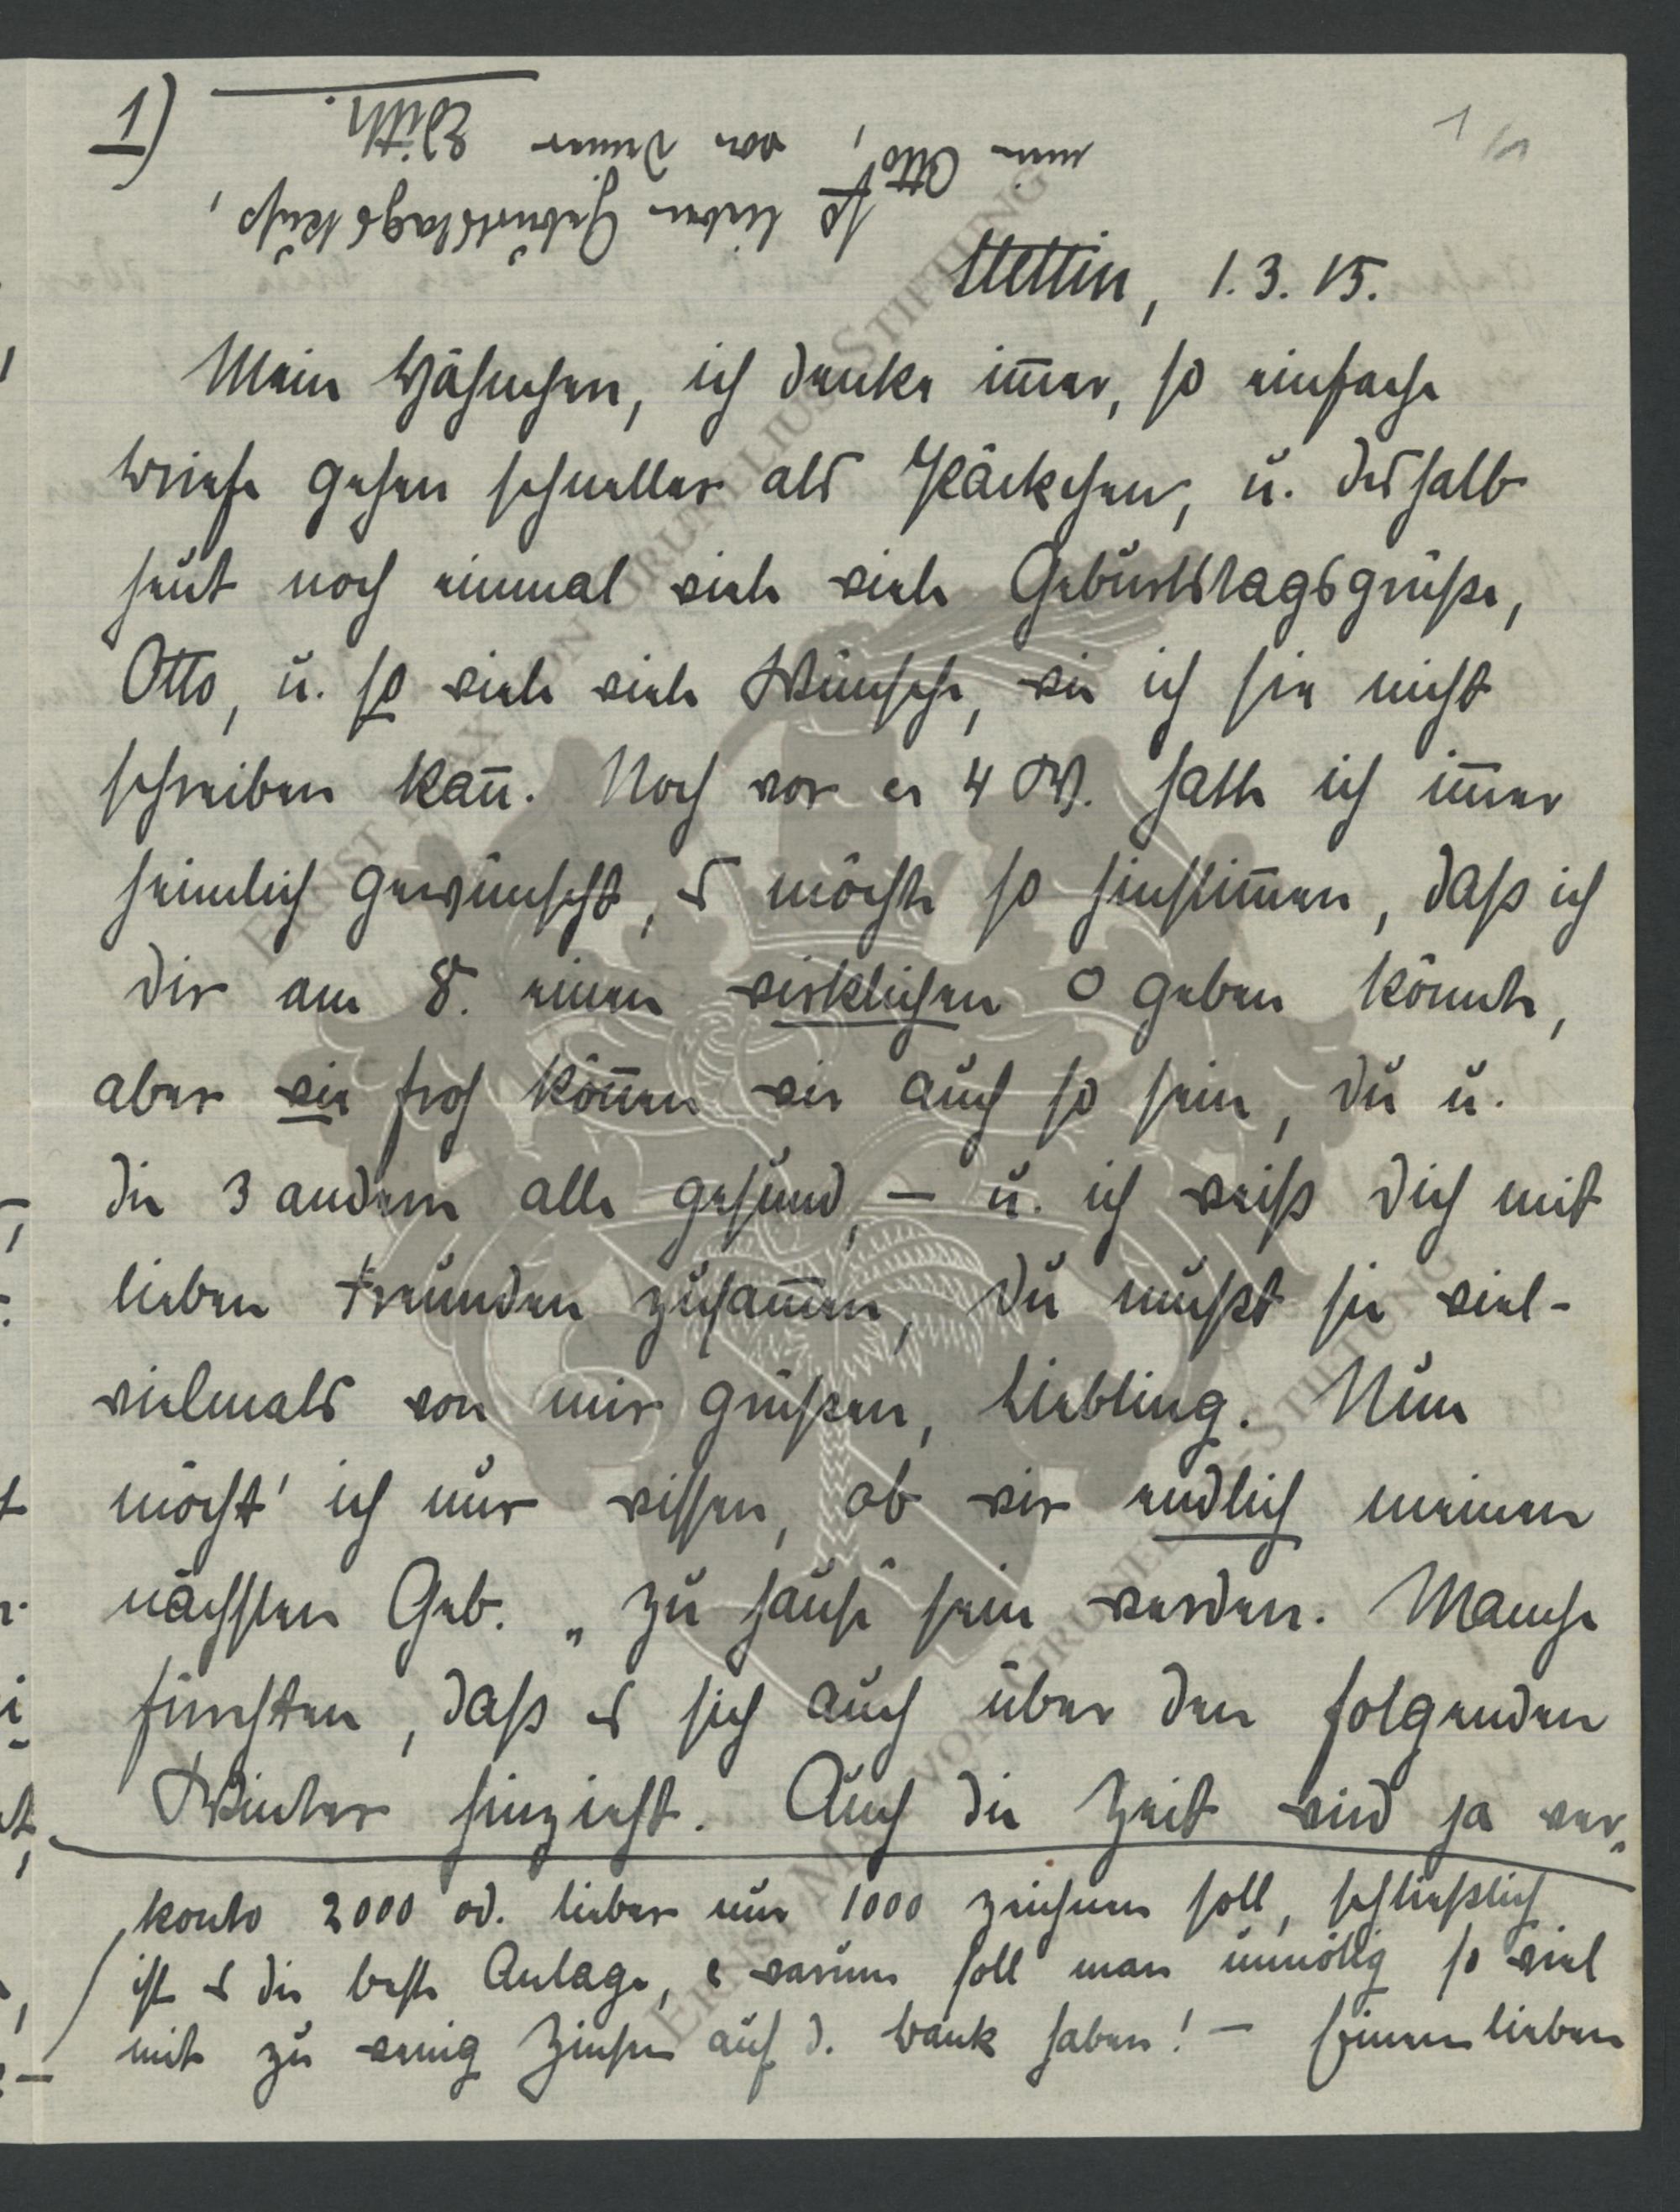 1)
so lieben Geburtstagskuß,
mein Otto, von Deiner Edith.
Stettin, 1.3.15.
Mein Hähnchen, ich denke im̄er, so einfache
Briefe gehen schneller als Päckchen, u. deshalb
heut noch einmal viele viele Geburtstagsgrüße,
Otto, u. so viele viele Wünsche, wie ich sie nicht
schreiben kan̄. Noch vor 4 W. hatte ich im̄er
heimlich gewünscht, es möchte so hinstim̄en, daß ich
dir am 8. einen wirklichen O geben könnte,
aber wie froh kön̄en wir auch so sein, du u.
die 3 andern alle gesund, – u. ich weiß dich mit
lieben Freunden zusam̄en, du mußt sie viel-
vielmals von mir grüßen, Liebling. Nun
möcht' ich nur wissen, ob wir endlich meinen
nächsten Geb. „zu Hause" sein werden. Manche
fürchten, daß es sich auch über den folgenden
Winter hinzieht. Auch die Zeit wird ja ver-
konto 2000 od. lieber nur 1000 zeichnen soll, schließlich
ist es die beste Anlage, warum soll man unnötig so viel
mit zu wenig Zinsen auf d. Bank haben! – Einen lieben
ERNST MAX VON GRUNELIUS-STIFTUNG
ERNST MAX VON GRUNELIUS-STIFTUNG